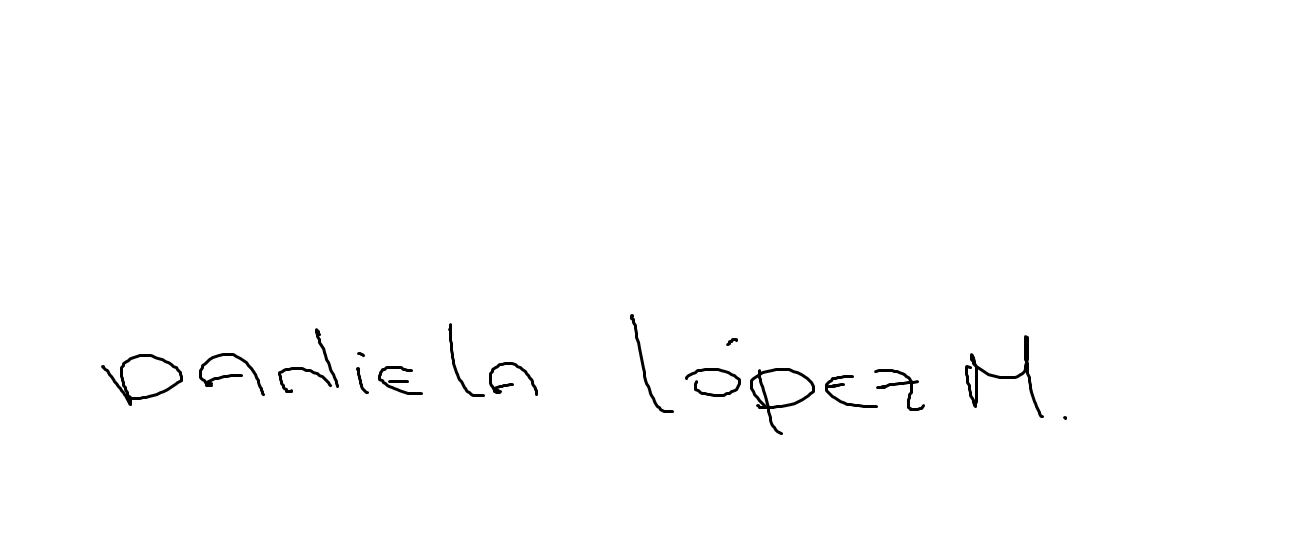 Daniela López M.